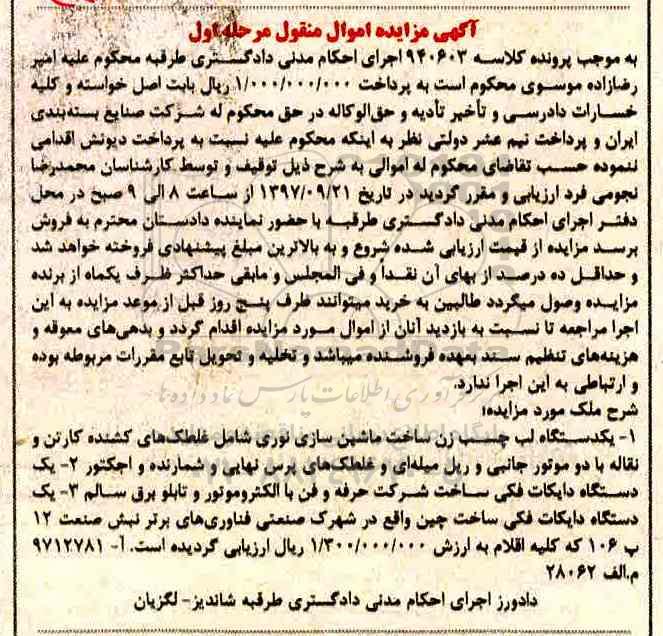 آگهی مزایده اموال منقول مرحله اول
به موجب پرونده کلاسه ۹۴۰۶۰۳ اجرای احکام مدنی دادگستری طرقبه محکوم علیه امیر
رضازاده موسوی محکوم است به پرداخت ۱/۰۰۰/۰۰۰/۰۰۰ ریال بابت اصل خواسته و کلیه
خسارات دادرسی و تأخیر تأدیه و حق‌الوکاله در حق محکوم له شرکت صنایع بسته‌بندی
ایران و پرداخت نیم عشر دولتی نظر به اینکه محکوم علیه نسبت به پرداخت دیونش اقدامی
ننموده حسب تقاضای محکوم له اموالی به شرح ذیل توقیف و توسط کارشناسان محمدرضا
نجومی فرد ارزیابی و مقرر گردید در تاریخ ۱۳۹۷/۰۹/۲۱ از ساعت ۸ الی ۹ صبح در محل
دفتر اجرای احکام مدنی دادگستری طرقبه با حضور نماینده دادستان محترم به فروش
برسد مزایده از قیمت ارزیابی شده شروع و به بالاترین مبلغ پیشنهادی فروخته خواهد شد
و حداقل ده درصد از بهای آن نقداً و فی المجلس و مابقی حداکثر ظرف یکماه از برنده
مزایده وصول میگردد طالبین به خرید میتوانند ظرف پنج روز قبل از موعد مزایده به این
اجرا مراجعه تا نسبت به بازدید آنان از اموال مورد مزایده اقدام گردد و بدهی‌های معوقه و
هزینه‌های تنظیم سند بعهده فروشنده میباشد و تخلیه و تحویل تابع مقررات مربوطه بوده
و ارتباطی به این اجرا ندارد.
شرح ملک مورد مزایده:
۱- یکدستگاه لب چسب زن ساخت ماشین سازی نوری شامل غلطک‌های کشنده کارتن و
نقاله با دو موتور جانبی و ریل میله‌ای و غلطک‌های پرس نهایی و شمارنده و اجکتور ۲- یک
دستگاه دایکات فکی ساخت شرکت حرفه و فن با الکتروموتور و تابلو برق سالم ۳- یک
دستگاه دایکات فکی ساخت چین واقع در شهرک صنعتی فناوری‌های برتر نبش صنعت ۱۲
پ ۱۰۶ که کلیه اقلام به ارزش ۱/۳۰۰/۰۰۰/۰۰۰ ریال ارزیابی گردیده است. آ- ۹۷۱۲۷۸۱
م.الف ۲۸۰۶۲
دادورز اجرای احکام مدنی دادگستری طرقبه شاندیز- لگزیان